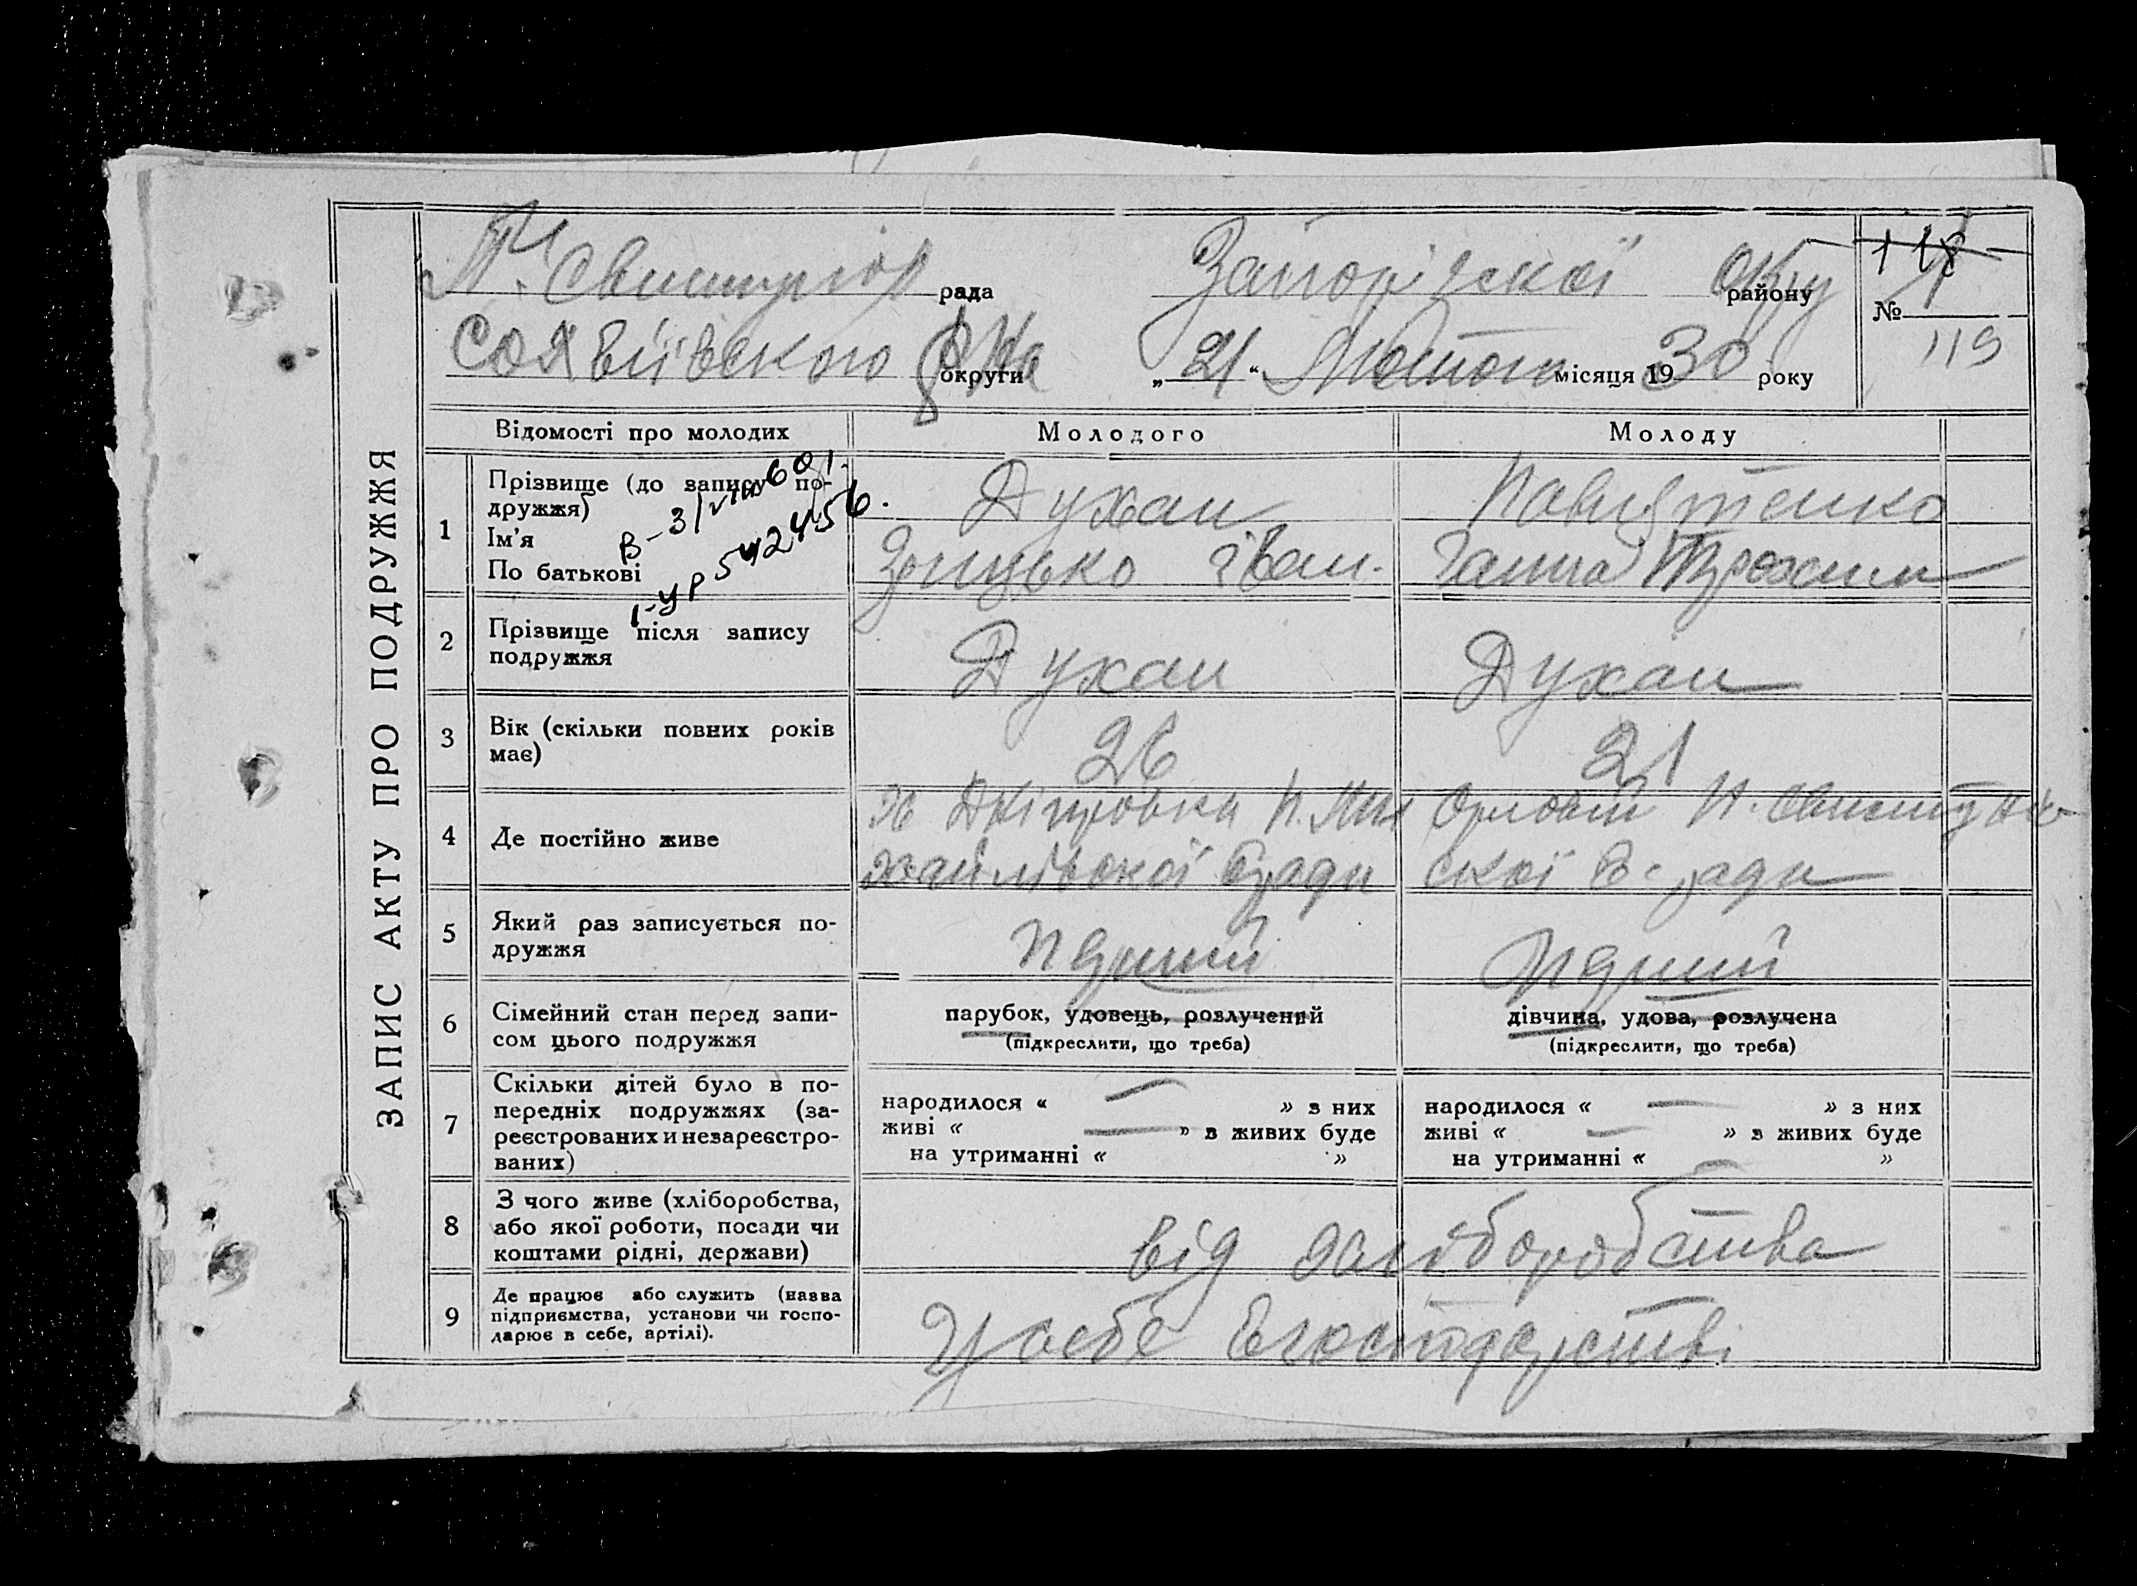 ЗАПИС АКТУ ПРО ПОДРУЖЖЯ
рада
Запорізскої окру
району
118
№ 4
119
софіївского р-на
округи
„ 21 “ Лютого місяця 1930 року
Відомості про молодих
Молодого
Молоду
1
Прізвище (до запису по-
дружжя)
Ім'я
По батькові
Духан
Грицько Іван.
Ганна Трохим
2
Прізвище після запису
подружжя
Духан
Духан
3
Вік (скільки повних років
має)
26
21
4
Де постійно живе
х Дніпровка П. Ми
хайлівскої с ради
П. Свистунів
скої с. ради
5
Який раз записується по-
дружжя
перший
перший
6
Сімейний стан перед запи-
сом цього подружжя
парубок, удовець, розлучений
(підкреслити, що треба)
дівчина, удова, розлучена
(підкреслити, що треба)
7
Скільки дітей було в по-
передніх подружжях (за-
реєстрованих и незареєстро-
ваних)
народилося « — » з них
живі « — » з живих буде
на утриманні « »
народилося « — » з них
живі « — » з живих буде
на утриманні « — »
8
З чого живе (хліборобства,
або якої роботи, посади чи
коштами рідні, держави)
від хліборобства
9
Де працює або служить (назва
підприємства, установи чи госпо-
дарює в себе, артілі).
У себе в господарстві